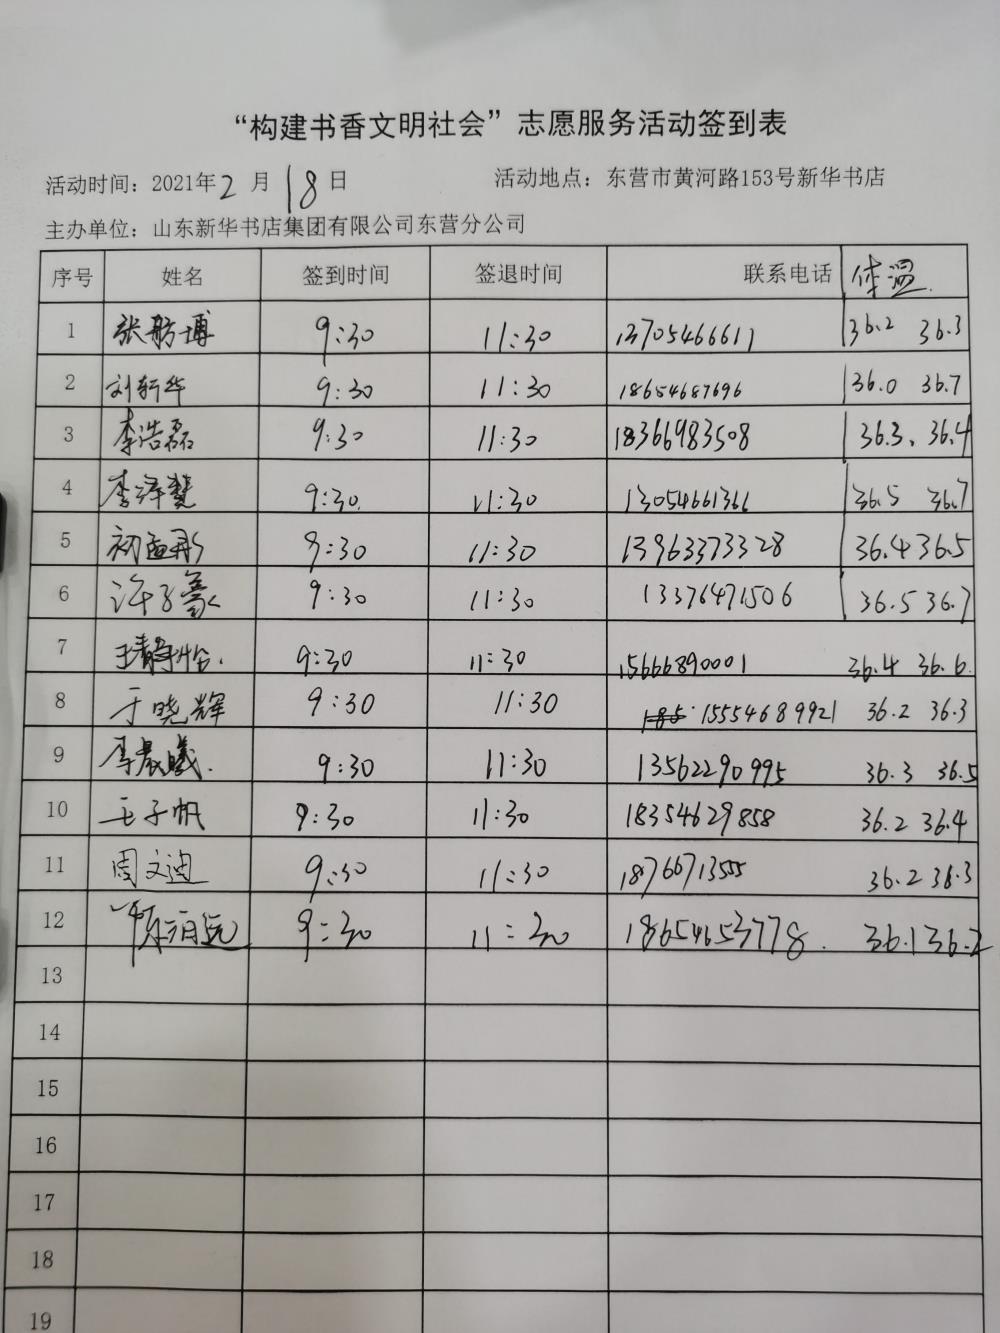 “构建书香文明社会”志愿服务活动签到表
活动时间：2021年2月18日 活动地点：东营市黄河路153号新华书店
主办单位：山东新华书店集团有限公司东营分公司
序号 姓名 签到时间 签退时间 联系电话 体温
1 张舫博 9:30 11:30 13705466611 36.2 36.3
2 刘轩华 9:30 11:30 18654687696 36.0 36.7
3 李浩磊 9:30 11:30 18366983508 36.3、36.4
4 李泽慧 9:30 11:30 13054661361 36.5 36.7
5 初孟彤 9:30 11:30 13963373328 36.4 36.5
6 许子豪 9:30 11:30 13376471506 36.5 36.7
7 王静怡 9:30 11:30 15666890001 36.4 36.6
8 于晓辉 9:30 11:30 15554689921 36.2 36.3
9 李晨曦 9:30 11:30 13562290995 36.3 36.5
10 王子帆 9:30 11:30 18354629858 36.2 36.4
11 周文迪 9:30 11:30 18766713555 36.2 36.3
12 9:30 11:30 18654653778 36.1 36.2
13
14
15
16
17
18
19